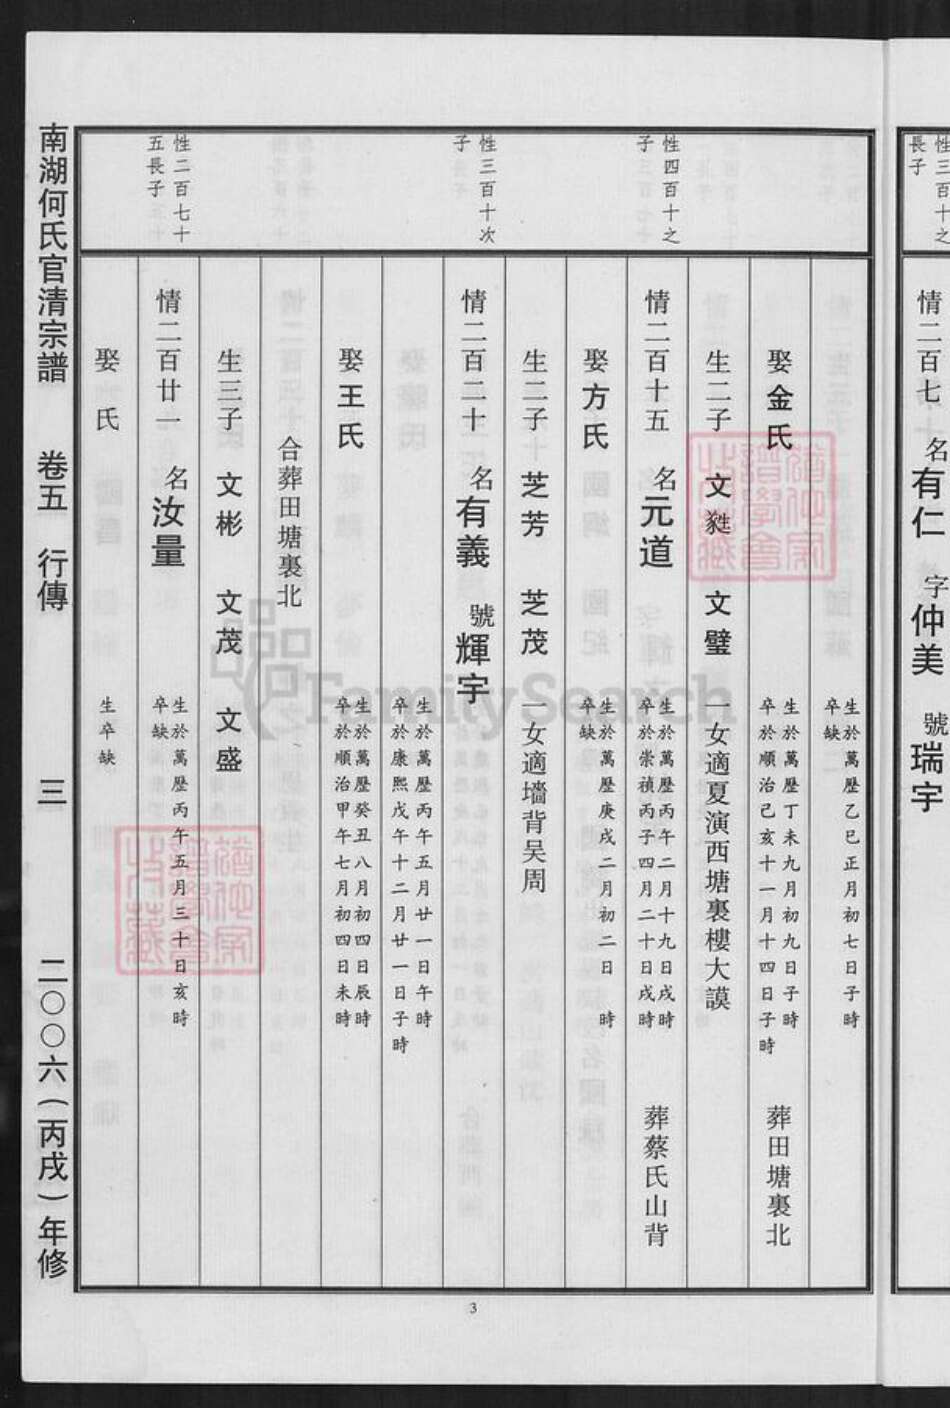 性三百十之
長子
情二百七 名有仁 字仲美 號瑞宇
生於萬歷乙巳正月初七日子時
卒缺
娶金氏
生於萬歷丁未九月初九日子時
卒於順治己亥十一月十四日子時
葬田塘裏北
生二子 文毿 文璧 一女適夏演西塘裏樓大謨
性四百十之
子
情二百十五 名元道
生於萬歷丙午二月十九日戌時
卒於崇禎丙子四月二十日戌時
葬蔡氏山背
娶方氏
生於萬歷庚戌二月初二日 時
卒缺
生二子 芝芳 芝茂 一女適墻背吴周
性三百十次
子
情二百二十 名有義 號輝宇
生於萬歷丙午五月廿一日午時
卒於康熙戊午十二月廿一日子時
娶王氏
生於萬歷癸丑八月初四日辰時
卒於順治甲午七月初四日未時
合葬田塘裏北
生三子 文彬 文茂 文盛
性二百七十
五長子
情二百廿一 名汝量
生於萬歷丙午五月三十日亥時
卒缺
娶 氏
生卒缺
南湖何氏官清宗譜 卷五 行傳 三 二〇〇六(丙戌)年修
3
FamilySearch